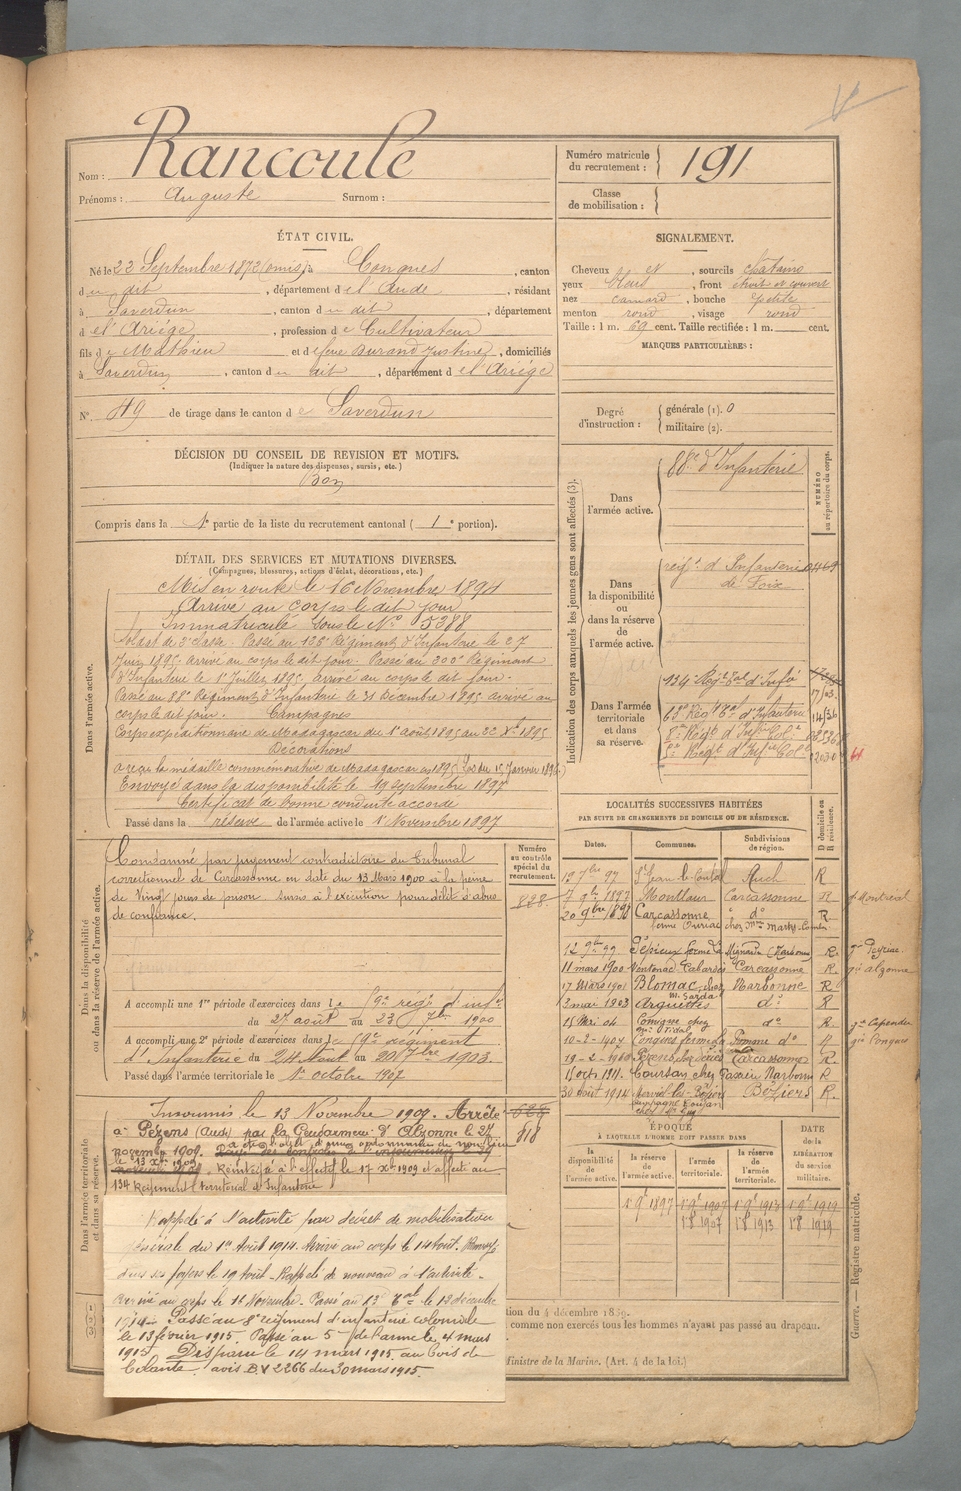 Nom : Rancoule
Prénoms : Auguste Surnom :
Numéro matricule du recrutement : 191
Classe de mobilisation :
ÉTAT CIVIL.
Né le 22 Septembre 1872 (omis), à Conques, canton
du dit, département de l'Aude, résidant
à Saverdun, canton du dit, département
de l'Ariége, profession de Cultivateur
fils de Mathieu et de feue Durand Justine, domiciliés
à Saverdun, canton du dit, département de l'Ariége
N° 49 de tirage dans le canton de Saverdun
SIGNALEMENT.
Cheveux et sourcils châtains
yeux bleus, front étroit et couvert
nez camard, bouche petite
menton rond, visage rond
Taille : 1 m. 69 cent. Taille rectifiée : 1 m. cent.
MARQUES PARTICULIÈRES :
Degré d'instruction : générale (1). 0
militaire (2).
DÉCISION DU CONSEIL DE REVISION ET MOTIFS.
(Indiquer la nature des dispenses, sursis, etc.)
Bon
Compris dans la 1e partie de la liste du recrutement cantonal ( 1e portion).
DÉTAIL DES SERVICES ET MUTATIONS DIVERSES.
(Campagnes, blessures, actions d'éclat, décorations, etc.)
Dans l'armée active.
Mis en route le 16 Novembre 1894
Arrivé au corps le dit jour
Immatriculé sous le N° 5288
Soldat de 2e classe. Passé au 135e Régiment d'Infanterie le 27
Juin 1895 arrivé au corps le dit jour. Passé au 200e Régiment
d'Infanterie le 1er Juillet 1895. arrivé au corps le dit jour.
Passé au 88e Régiment d'Infanterie le 31 Décembre 1895 arrivé au
corps le dit jour. Campagnes
Corps expéditionnaire de Madagascar du 1er août 1895 au 22 Xbre 1895
Décorations
a reçu la médaille commémorative de Madagascar 1895 (Loi du 15 Janvier 1896)
Envoyé dans la disponibilité le 19 septembre 1897
Certificat de bonne conduite accordé
Passé dans la réserve de l'armée active le 1er Novembre 1897
Indication des corps auxquels les jeunes gens sont affectés (3).
NUMÉRO au répertoire du corps.
Dans l'armée active.
88e d'Infanterie
Dans la disponibilité ou dans la réserve de l'armée active.
régt d'Infanterie
de Foix
Dans l'armée territoriale et dans sa réserve.
134 Régt Tal d'Infie
8e Régt d'Infie Cole
5e Régt d'Infie Cole
Dans la disponibilité ou dans la réserve de l'armée active.
Numéro au contrôle spécial du recrutement.
828
Condamné par jugement contradictoire du Tribunal
correctionnel de Carcassonne en date du 13 Mars 1900 à la peine
de Vingt jours de prison sursis à l'exécution pour délit d'abus
de confiance.
A accompli une 1re période d'exercices dans le 59e régt d'infie
du 27 août au 23 7bre 1900
A accompli une 2e période d'exercices dans le 59e régiment
d'Infanterie du 24 Aout au 20 7bre 1903.
Passé dans l'armée territoriale le 1er octobre 1907
LOCALITÉS SUCCESSIVES HABITÉES
PAR SUITE DE CHANGEMENTS DE DOMICILE OU DE RÉSIDENCE.
Dates. Communes. Subdivisions de région. D domicile ou R résidence.
Auch R
7 9bre 1897 Montlaur Carcassonne R
20 9bre 1898 Carcassonne do R
11 mars 1900 Ventenac Cabardès Carcassonne R
17 Mars 1901 Blomac Narbonne R
2 mai 1903 Arquettes do R
15 Mai 04 Comigne chez do R
10-2-1907 Conques
19-2-1910 Pezens Carcassonne R
Coursan chez Narbonne R
30 Août 1914 Béziers R
Dans l'armée territoriale et dans sa réserve.
Insoumis le 13 Novembre 1909. Arrêté
à Pézens (Aude) par la Gendarmerie d'Alzonne le 27
novembre 1909.
Réintégré à l'effectif le 17 Xbre 1909 et affecté au
134 Régiment Territorial d'Infanterie
818
ÉPOQUE
À LAQUELLE L'HOMME DOIT PASSER DANS
la disponibilité de l'armée active. la réserve de l'armée active. l'armée territoriale. la réserve de l'armée territoriale. DATE de la LIBÉRATION du service militaire.
1 8 1907 1 8 1913 1 8 1919
Guerre. — Registre matricule.
Rappelé à l'activité par décret de mobilisation
générale du 1er Août 1914. Arrivé au corps le 14 Août. Renvoyé
dans ses foyers le 19 Août. Rappelé de nouveau à l'activité.
Arrivé au corps le 16 Novembre. Passé au 13 Cal le 12 décembre
1914. Passé au 8e régiment d'infanterie coloniale
le 13 février 1915. Passé au 5e de l'arme le 4 mars
1915. Disparu le 14 mars 1915 au bois de
avis B.V 2266 du 30 mars 1915.
tion du 4 décembre 1889.
comme non exercés tous les hommes n'ayant pas passé au drapeau.
Ministre de la Marine. (Art. 4 de la loi.)